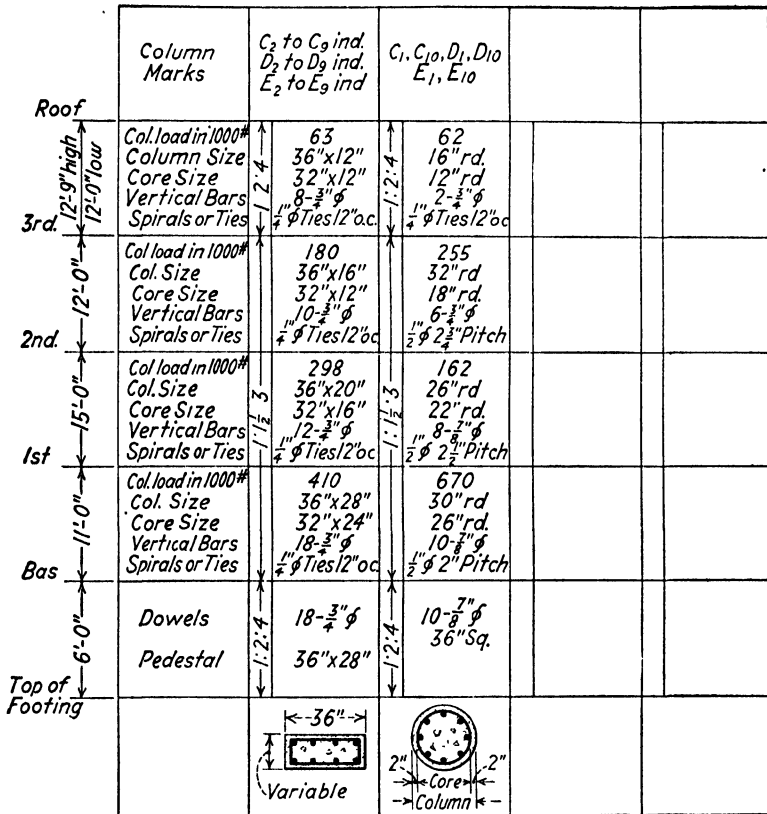 Column Marks
C2 to C9 ind.
D2 to D9 ind.
E2 to E9 ind
C1, C10, D1, D10
E1, E10
Roof
12'-9" high
12'-0" low
3rd.
Col. load in 1000#
Column Size
Core Size
Vertical Bars
Spirals or Ties
1:2:4
63
36"x12"
32"x12"
8-3/4"ϕ
1/4"ϕ Ties 12"o.c.
1:2:4
62
16"rd.
12"rd
2-3/4"ϕ
1/4"ϕ Ties 12"oc
12'-0"
2nd.
Col load in 1000#
Col. Size
Core Size
Vertical Bars
Spirals or Ties
180
36"x16"
32"x12"
10-3/4"ϕ
1/4"ϕ Ties 12"oc
255
32"rd
18"rd.
6-3/4"ϕ
1/2"ϕ 2 3/4"Pitch
15'-0"
1st
Col load in 1000#
Col. Size
Core Size
Vertical Bars
Spirals or Ties
1:1 1/2:3
298
36"x20"
32"x16"
12-3/4"ϕ
1/4"ϕ Ties 12"oc
1:1 1/2:3
162
26"rd
22"rd.
8-7/8"ϕ
1/2"ϕ 2 1/2"Pitch
11'-0"
Bas
Col. load in 1000#
Col. Size
Core Size
Vertical Bars
Spirals or Ties
410
36"x28"
32"x24"
18-3/4"ϕ
1/4"ϕ Ties 12"oc
670
30"rd
26"rd.
10-7/8"ϕ
1/2"ϕ 2"Pitch
6'-0"
Top of
Footing
Dowels
Pedestal
1:2:4
18-3/4"ϕ
36"x28"
1:2:4
10-7/8"ϕ
36"Sq.
36"
Variable
2"
2"
Core
Column